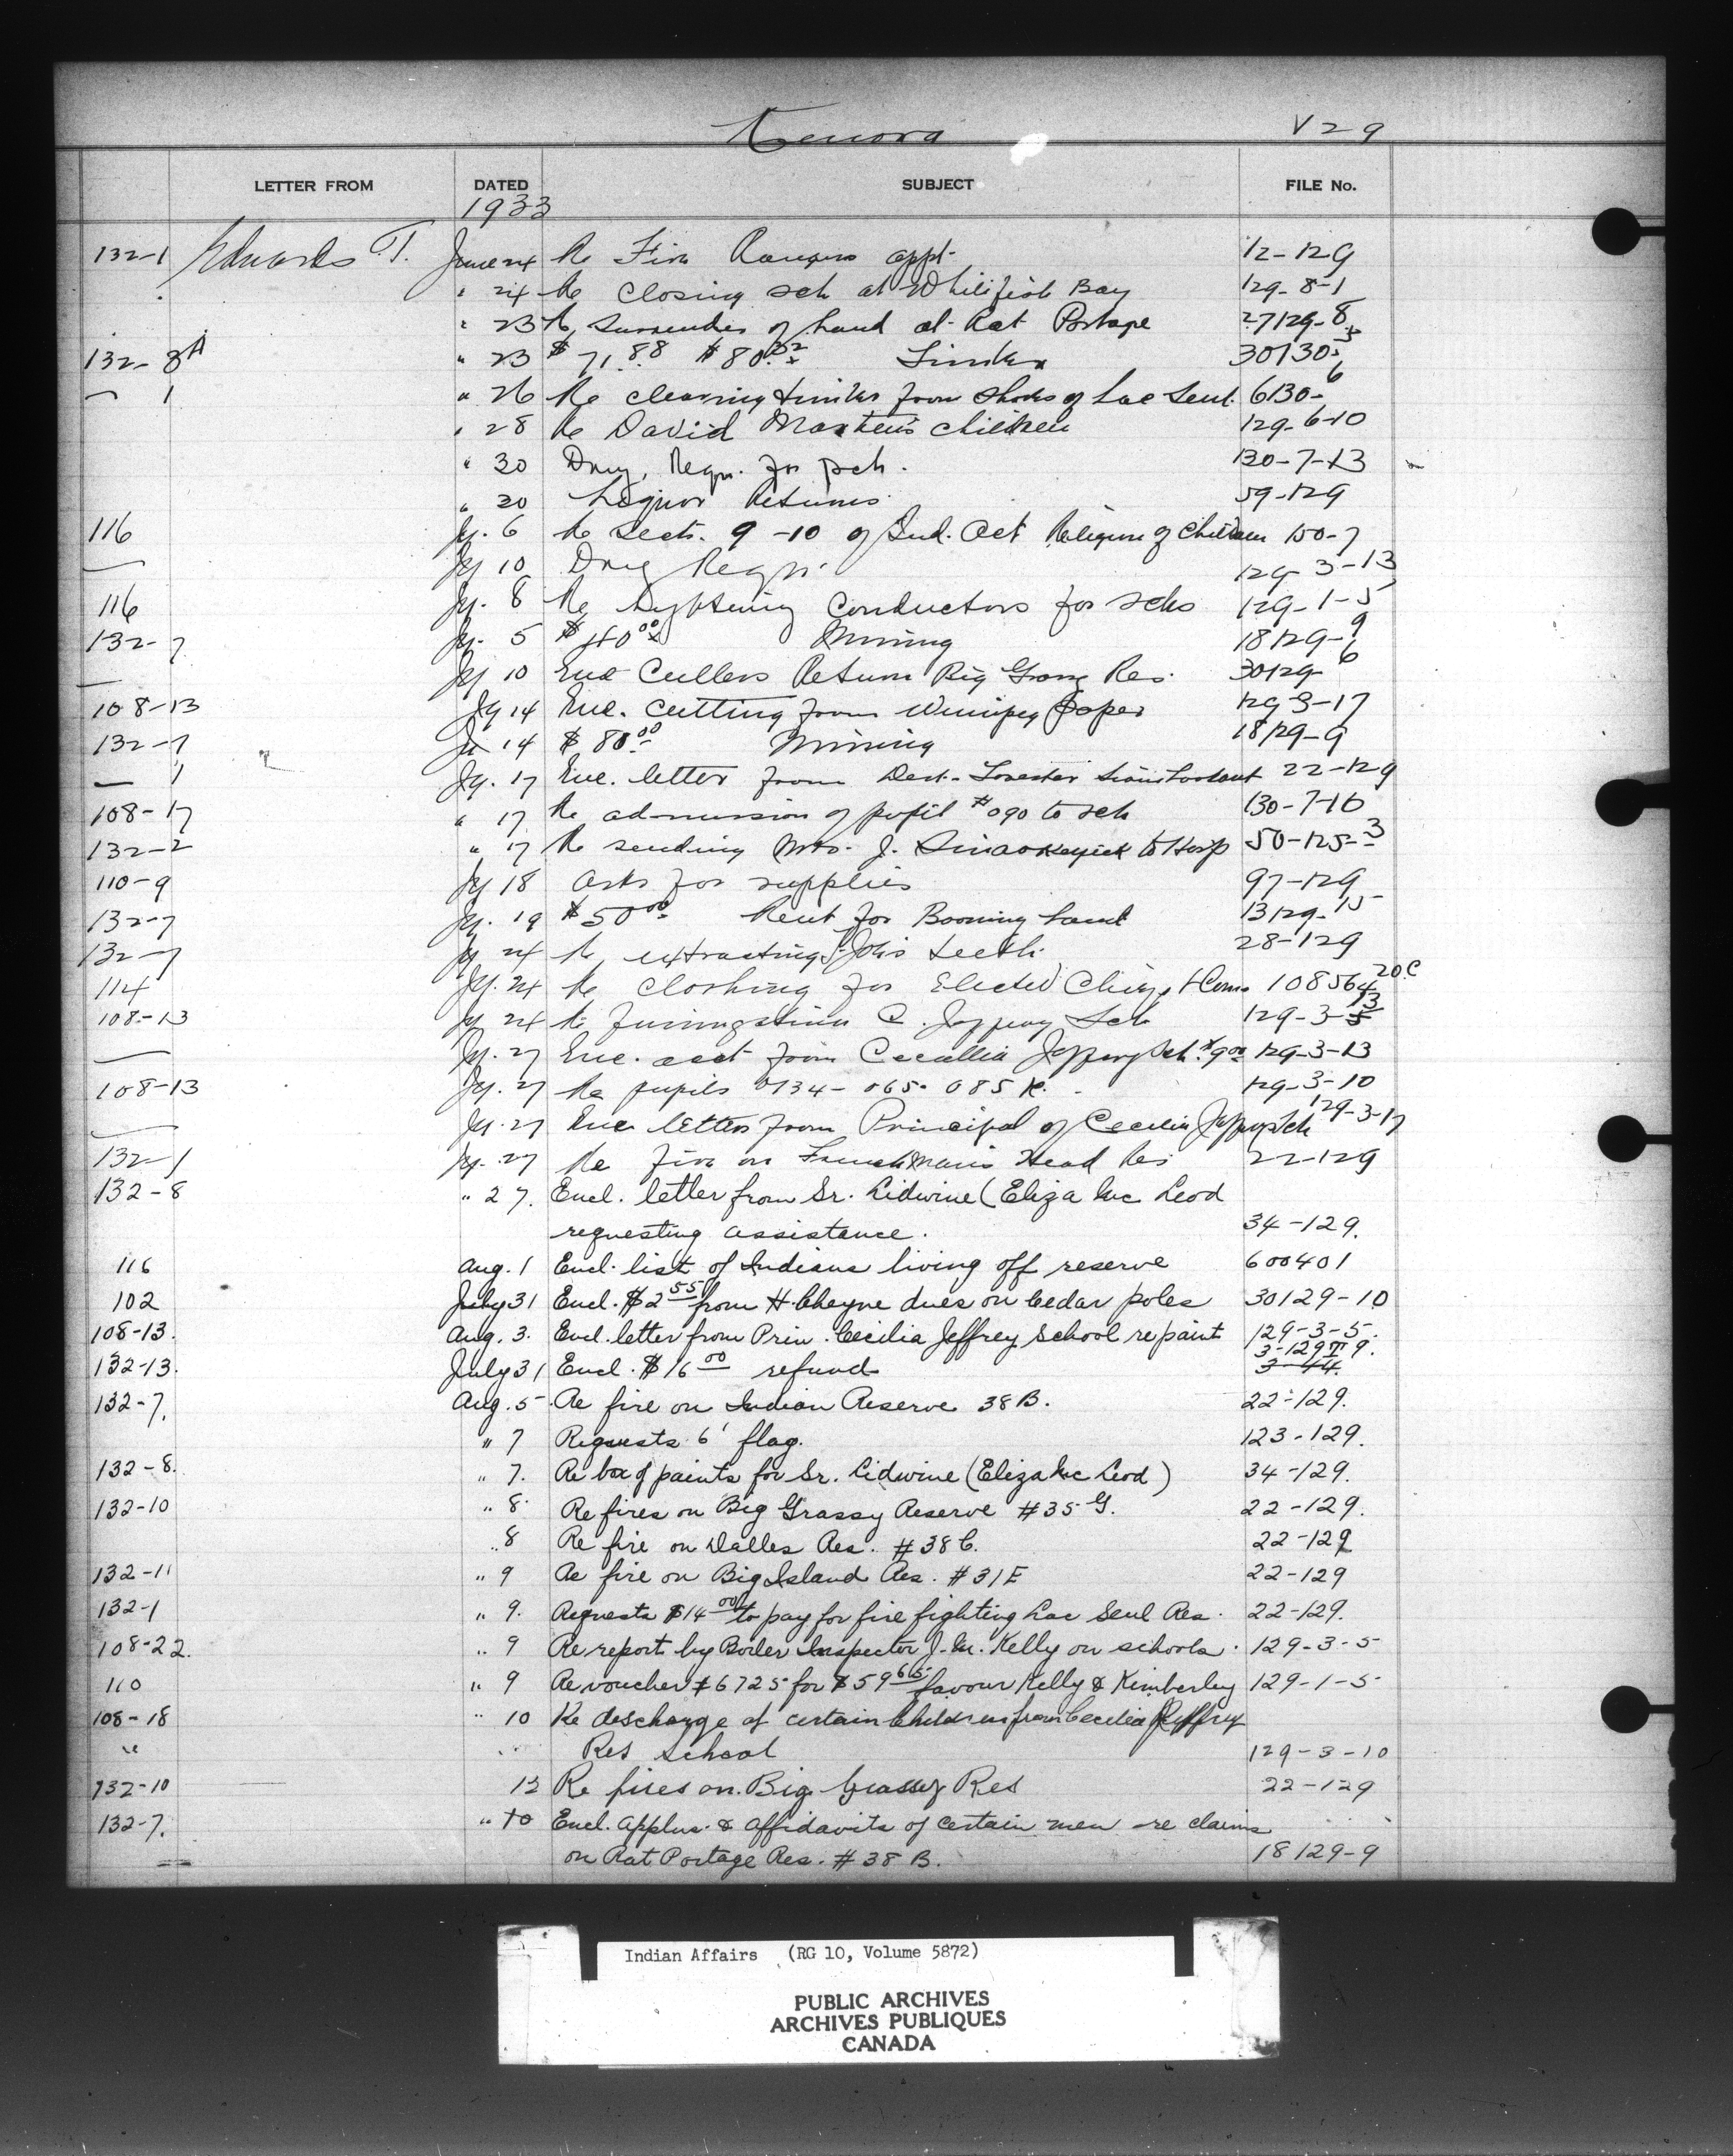 Kenora V29
LETTER FROM DATED SUBJECT FILE No.
1933
132-1 Edwards T. June 24 Re Fire Rangers appt. 12-129
" 24 Re closing sch at Whitefish Bay 129-8-1
" 23 Re Surrender of Land at Rat Portage 27129-8
132-8A " 23 $71.88 $80.32 Timber 30130-5
— 1 " 26 Re clearing timber from shores of Lac Seul. 6130-6
" 28 Re David Marten's children 129-6-10
" 30 Drug Reqn. for sch. 130-7-13
" 30 Liquor Returns 59-129
116 Jy. 6 Re Sects. 9-10 of Ind. Act Religion of Children 150-7
— Jy 10 Drug Reqn. 129-3-13
116 Jy. 8 Re Lightening Conductors for schs 129-1-5
132-7 Jy. 5 $40.00 Mining 18129-9
— Jy 10 Enc Cullers Return Big Grassy Res. 30129-6
108-13 Jy 14 Enc. cutting from Winnipeg paper 129-3-17
132-7 Jy 14 $80.00 Mining 18129-9
— 1 Jy. 17 Enc. letter from Dist. Forester 22-129
108-17 " 17 Re admission of pupil #090 to sch 130-7-10
132-2 " 17 Re sending Mrs. J. to Hosp 50-125-3
110-9 Jy 18 Asks for supplies 97-129
132-7 Jy. 19 $50.00 Rent for Booming Land 13129-15
132-7 Jy 24 Re extracting teeth 28-129
114 Jy. 24 Re Clothing for Elected Chiefs & Couns 108564 20.C
108-13 Jy 24 Re C. Jeffrey Sch 129-3-13
— Jy. 27 Enc. acct from Cecellia Jeffrey Sch. $9.00 129-3-13
108-13 Jy. 27 Re pupils 0134-065-085 R. 129-3-10
— Jy. 27 Enc letter from Principal of Cecilia Jeffrey Sch 129-3-17
132-1 Jy. 27 Re fire on Frenchman's Head Res 22-129
132-8 " 27. Encl. letter from Sr. Lidwine (Eliza Mc Leod
requesting assistance. 34-129.
116 Aug. 1 Encl. list of Indians living off reserve 600401
102 July 31 Encl. $2.55 from H. Cheyne dues on Cedar poles 30129-10
108-13. Aug. 3. Encl. letter from Prin. Cecilia Jeffrey School re paint 129-3-5.
132-13. July 31 Encl. $16.00 refund 3-129 TT 9.
3-44.
132-7. Aug. 5. Re fire on Indian Reserve 38B. 22-129.
" 7 Requests 6' flag. 123-129.
132-8. " 7. Re box of paints for Sr. Lidwine (Eliza Mc Leod) 34-129.
132-10 " 8. Re fires on Big Grassy Reserve #35 G. 22-129.
" 8 Re fire on Dalles Res. #38C. 22-129
132-11 " 9 Re fire on Big Island Res. #31E 22-129
132-1 " 9. Requests $14.00 to pay for fire fighting Lac Seul Res. 22-129.
108-22. " 9 Re report by Boiler Inspector J. M. Kelly on schools. 129-3-5
110 " 9 Re voucher #6725 for $59.65 favour Kelly & Kimberley 129-1-5
108-18 " 10 Re descharge of certain Children from Cecilia Jeffrey
" Res School 129-3-10
132-10 12 Re fires on Big Grassy Res 22-129
132-7. " 10 Encl. applns. & affidavits of certain men re claims
on Rat Portage Res. #38 B. 18129-9
Indian Affairs (RG 10, Volume 5872)
PUBLIC ARCHIVES
ARCHIVES PUBLIQUES
CANADA